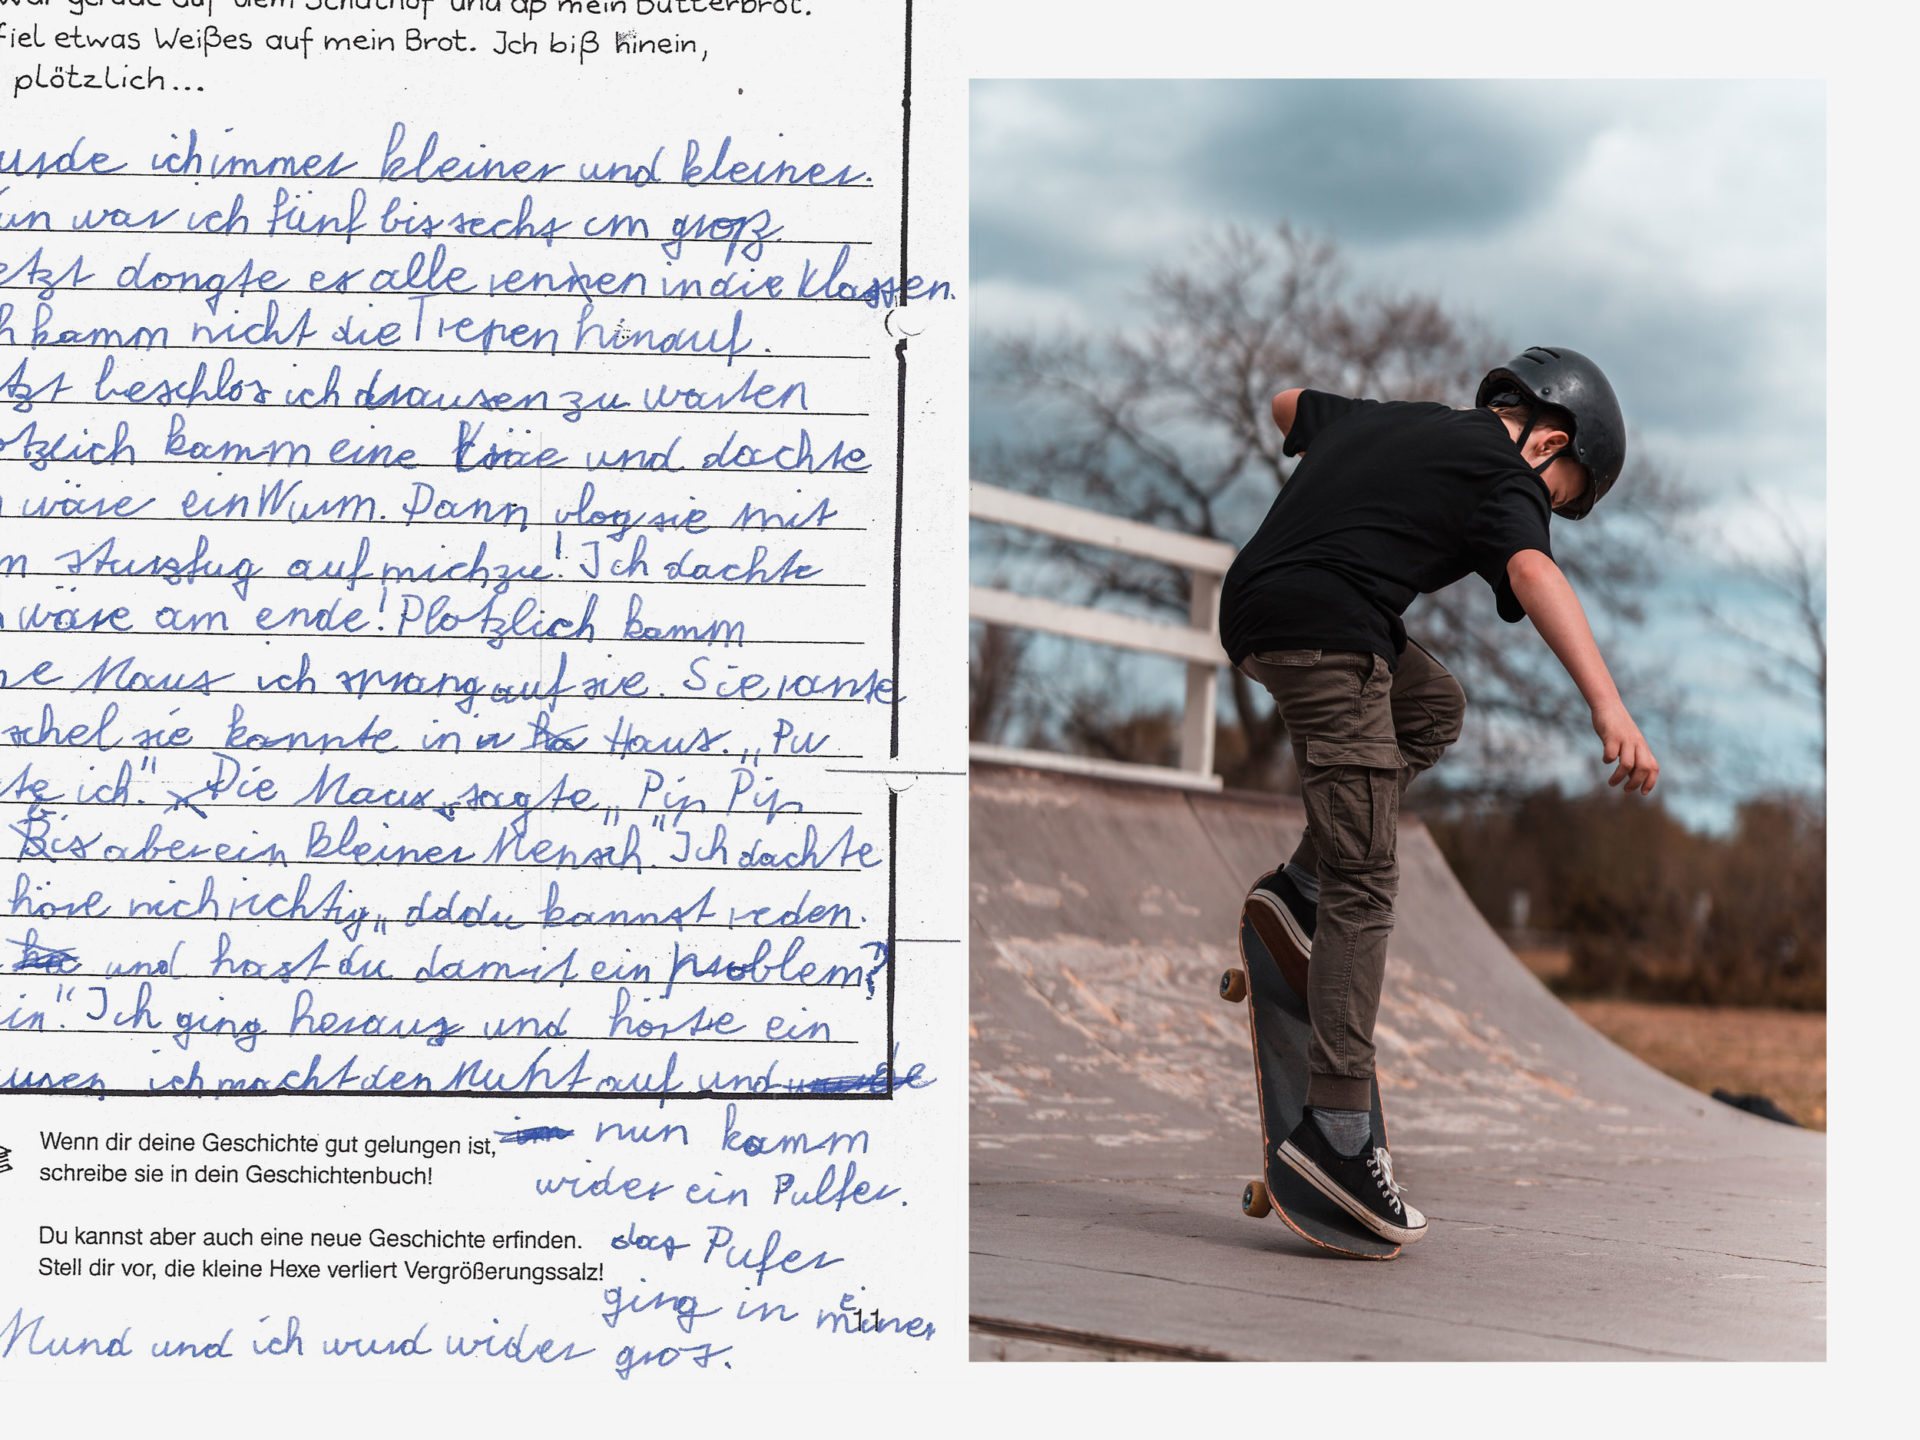 war gerade auf dem Schulhof und aß mein Butterbrot.
fiel etwas Weißes auf mein Brot. Ich biß hinein,
plötzlich...
urde ich immer kleiner und kleiner.
un war ich fünf bis sechs cm groß.
etzt dongte es alle rennen in die Klassen.
h kamm nicht die Trepen hinauf.
tzt beschlos ich drausen zu warten
otzlich kamm eine Kräe und dachte
wäre ein Wurm. Dann vlog sie mit
m sturzfug auf mich zu! Ich dachte
wäre am ende! Plotzlich kamm
ne Maus ich sprang auf sie. Sie rante
schel sie kannte in Haus. „Pu
te ich." Die Maus sagte „Pip Pip
Bis aber ein Kleiner Mensch." Ich dachte
höre nich richtig „dddu kannst reden.
und hast du damit ein problem?
in." Ich ging heraus und hörte ein
ich macht den auf und
Wenn dir deine Geschichte gut gelungen ist,
schreibe sie in dein Geschichtenbuch!
nun kamm
wider ein Pulfer.
Du kannst aber auch eine neue Geschichte erfinden.
Stell dir vor, die kleine Hexe verliert Vergrößerungssalz!
das Pufer
ging in meiner
11
Mund und ich wurd wider gros.